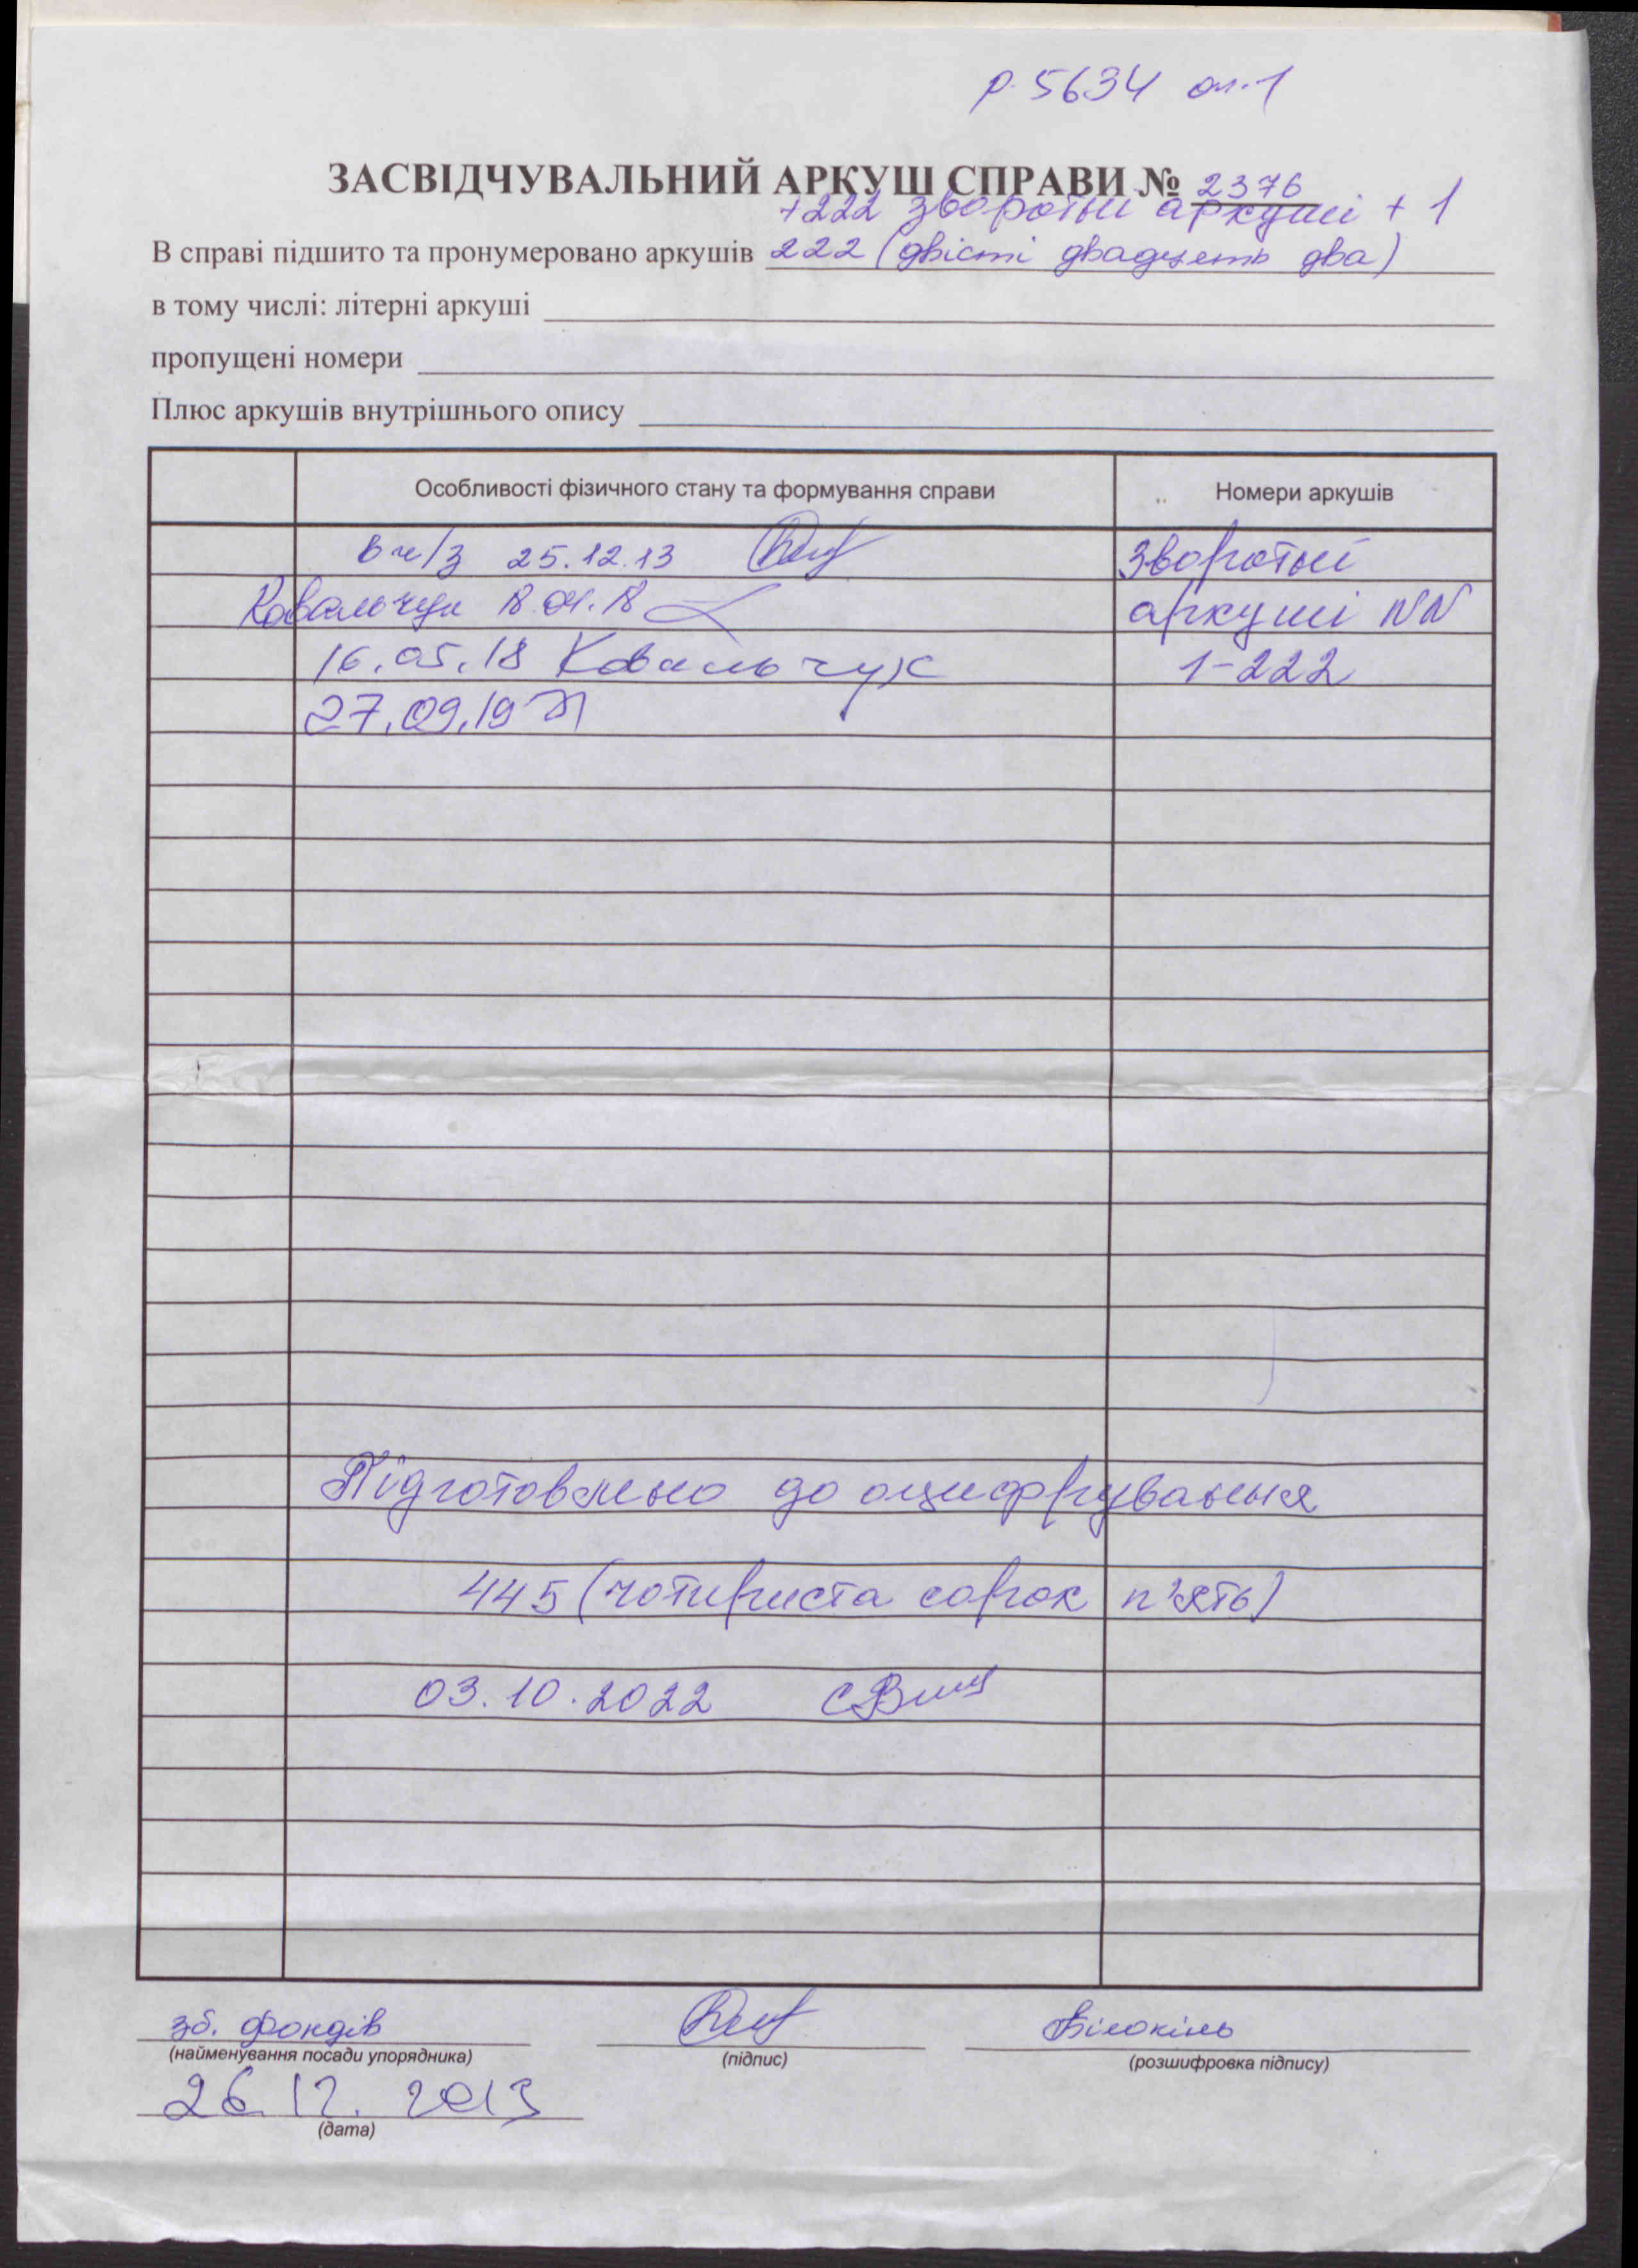 р. 5634 оп. 1
ЗАСВІДЧУВАЛЬНИЙ АРКУШ СПРАВИ № 2376
+222 зворотні аркуші + 1
В справі підшито та пронумеровано аркушів 222 (двісті двадцять два)
в тому числі: літерні аркуші
пропущені номери
Плюс аркушів внутрішнього опису
Особливості фізичного стану та формування справи Номери аркушів
в ч/з 25.12.13 Зворотні
Ковальчук 18.04.18 аркуші NN
16.05.18 Ковальчук 1-222
27.09.19
Підготовлено до оцифрування
445 (чотириста сорок п'ять)
03.10.2022
зб. фондів Білокінь
(найменування посади упорядника) (підпис) (розшифровка підпису)
26.12.2013
(дата)